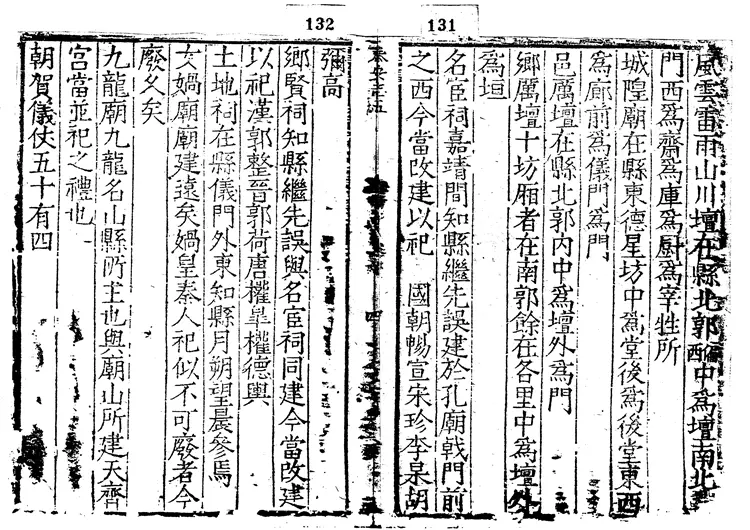 131
132
風雲雷雨山川壇在縣北郭西中爲壇南北
門西爲齋爲庫爲厨爲宰牲所
城隍廟在縣東德星坊中爲堂後爲後堂東西
爲廊前爲儀門爲門
邑厲壇在縣北郭内中爲壇外爲門
鄉厲壇十坊厢者在南郭餘在各里中爲壇外
爲垣
名宦祠嘉靖間知縣繼先誤建於孔廟戟門前
之西今當改建以祀 國朝暢宣宋珍李杲胡
四
彌高
鄉賢祠知縣繼先誤與名宦祠同建今當改建
以祀漢郭整晉郭荷唐權臯權德輿
土地祠在縣儀門外東知縣月朔望晨參焉
女媧廟廟建遠矣媧皇秦人祀似不可廢者今
廢久矣
九龍廟九龍名山縣所主也與廟山所建天齊
宫當並祀之禮也
朝賀儀仗五十有四